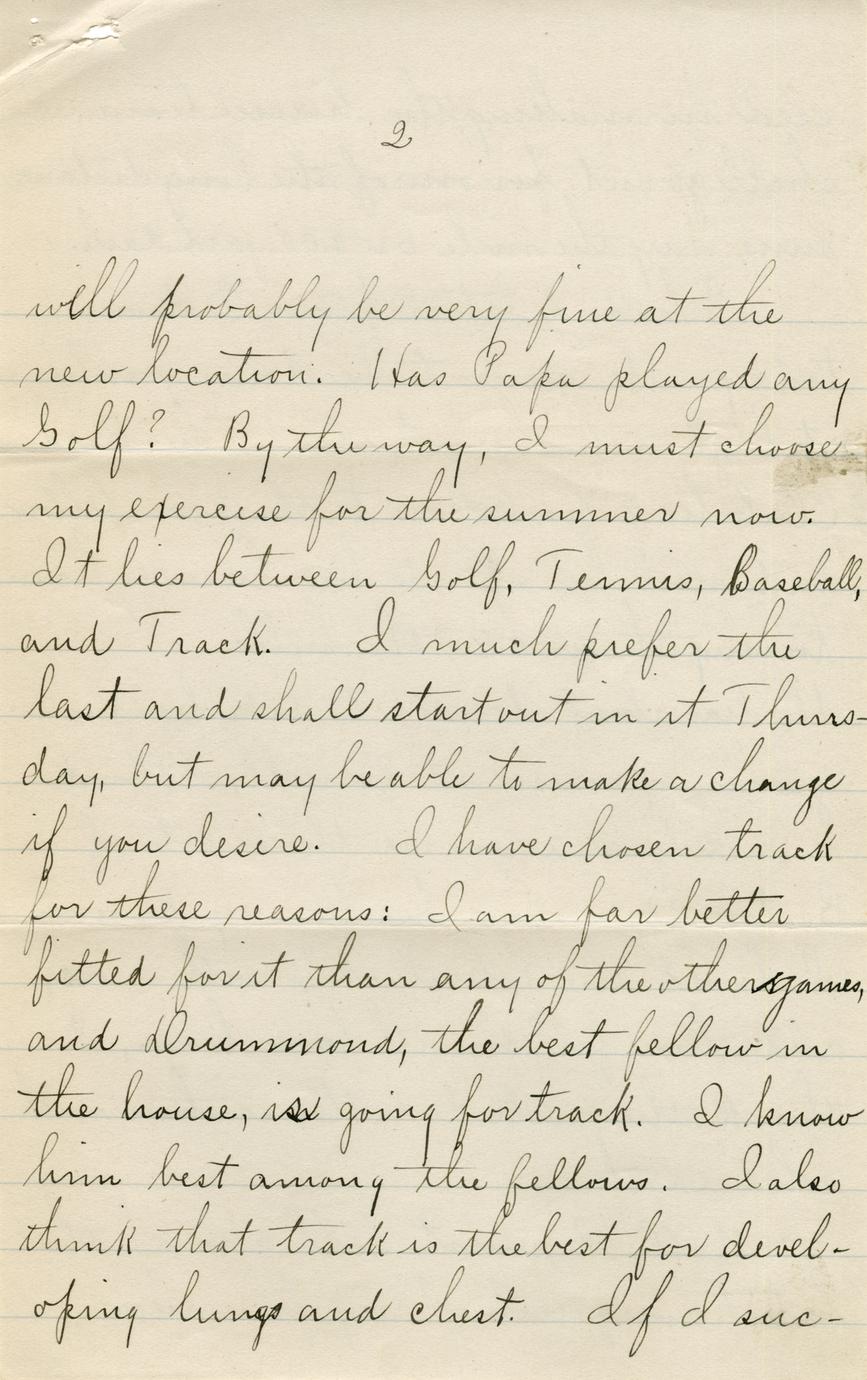 2
will probably be very fine at the
new location. Has Papa played any
Golf? By the way, I must choose
my exercise for the summer now.
It lies between Golf, Tennis, Baseball,
and Track. I much prefer the
last and shall start out in it Thurs-
day, but may be able to make a change
if you desire. I have chosen track
for these reasons: I am far better
fitted for it than any of the other games,
and Drummond, the best fellow in
the house, is going for track. I know
him best among the fellows. I also
think that track is the best for devel-
oping lungs and chest. If I suc-